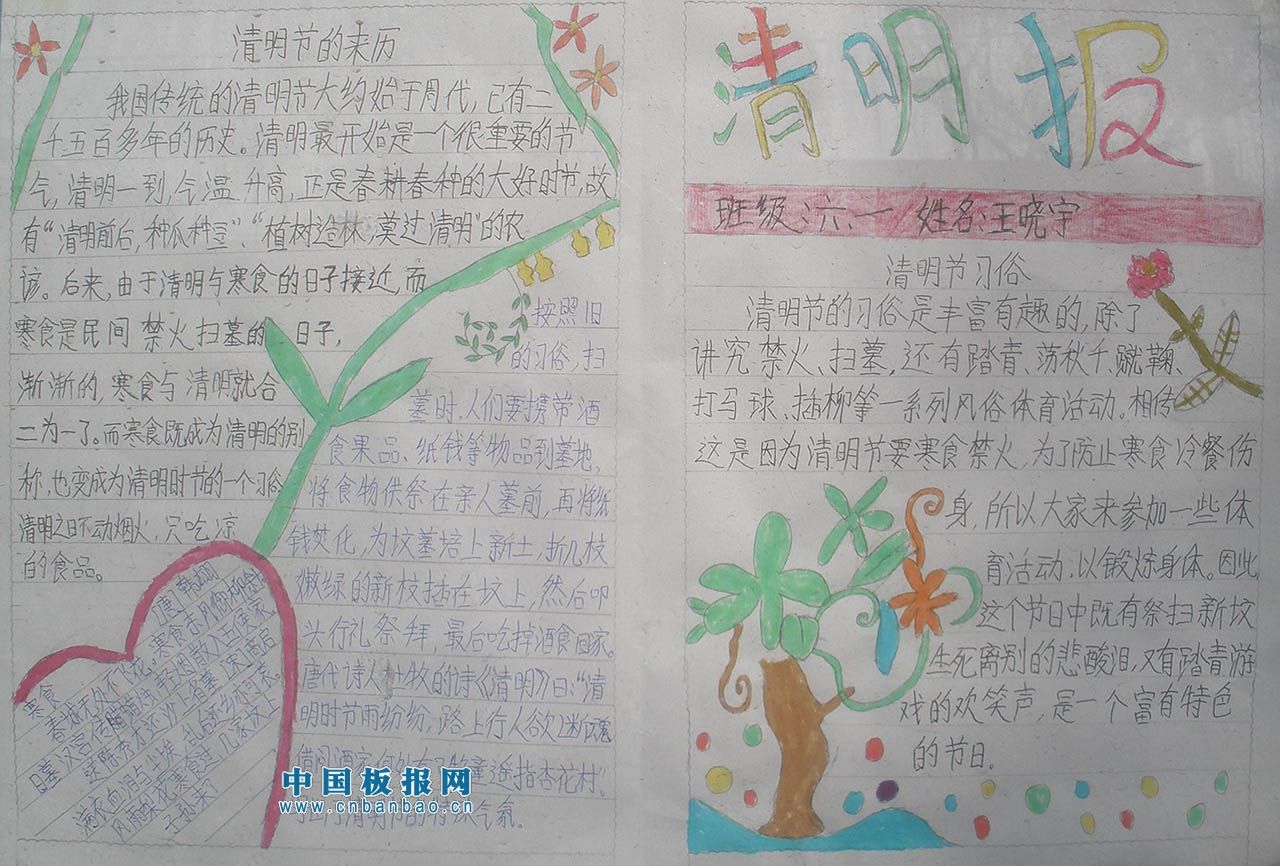 清明节的来历
我国传统的清明节大约始于周代,已有二
千五百多年的历史。清明最开始是一个很重要的节
气,清明一到,气温升高,正是春耕春种的大好时节,故
有“清明前后,种瓜种豆”、“植树造林,莫过清明”的农
谚。后来,由于清明与寒食的日子接近,而
寒食是民间禁火扫墓的日子,
渐渐的,寒食与清明就合
二为一了。而寒食既成为清明的别
称,也变成为清明时节的一个习俗
清明之日不动烟火,只吃凉
的食品。
按照旧
的习俗,扫
墓时,人们要携带酒
食果品、纸钱等物品到墓地,
将食物供祭在亲人墓前,再将纸
钱焚化,为坟墓培上新土,折几枝
嫩绿的新枝插在坟上,然后叩
头行礼祭拜,最后吃掉酒食回家。
唐代诗人杜牧的诗《清明》曰:“清
明时节雨纷纷,路上行人欲断魂
借问酒家何处有?牧童遥指杏花村。”
清明节的特殊气氛。
寒食 唐 韩翃
春城无处不飞花,寒食东风御柳斜
日暮汉宫传腊烛,轻烟散入五侯家
中国板报网
www.cnbanbao.cn
清明报
班级:六、一 姓名:王晓宇
清明节习俗
清明节的习俗是丰富有趣的,除了
讲究禁火、扫墓,还有踏青、荡秋千、蹴鞠、
打马球、插柳等一系列风俗体育活动。相传
这是因为清明节要寒食禁火,为了防止寒食冷餐伤
身,所以大家来参加一些体
育活动,以锻炼身体。因此
这个节日中既有祭扫新坟
生死离别的悲酸泪,又有踏青游
戏的欢笑声,是一个富有特色
的节日.